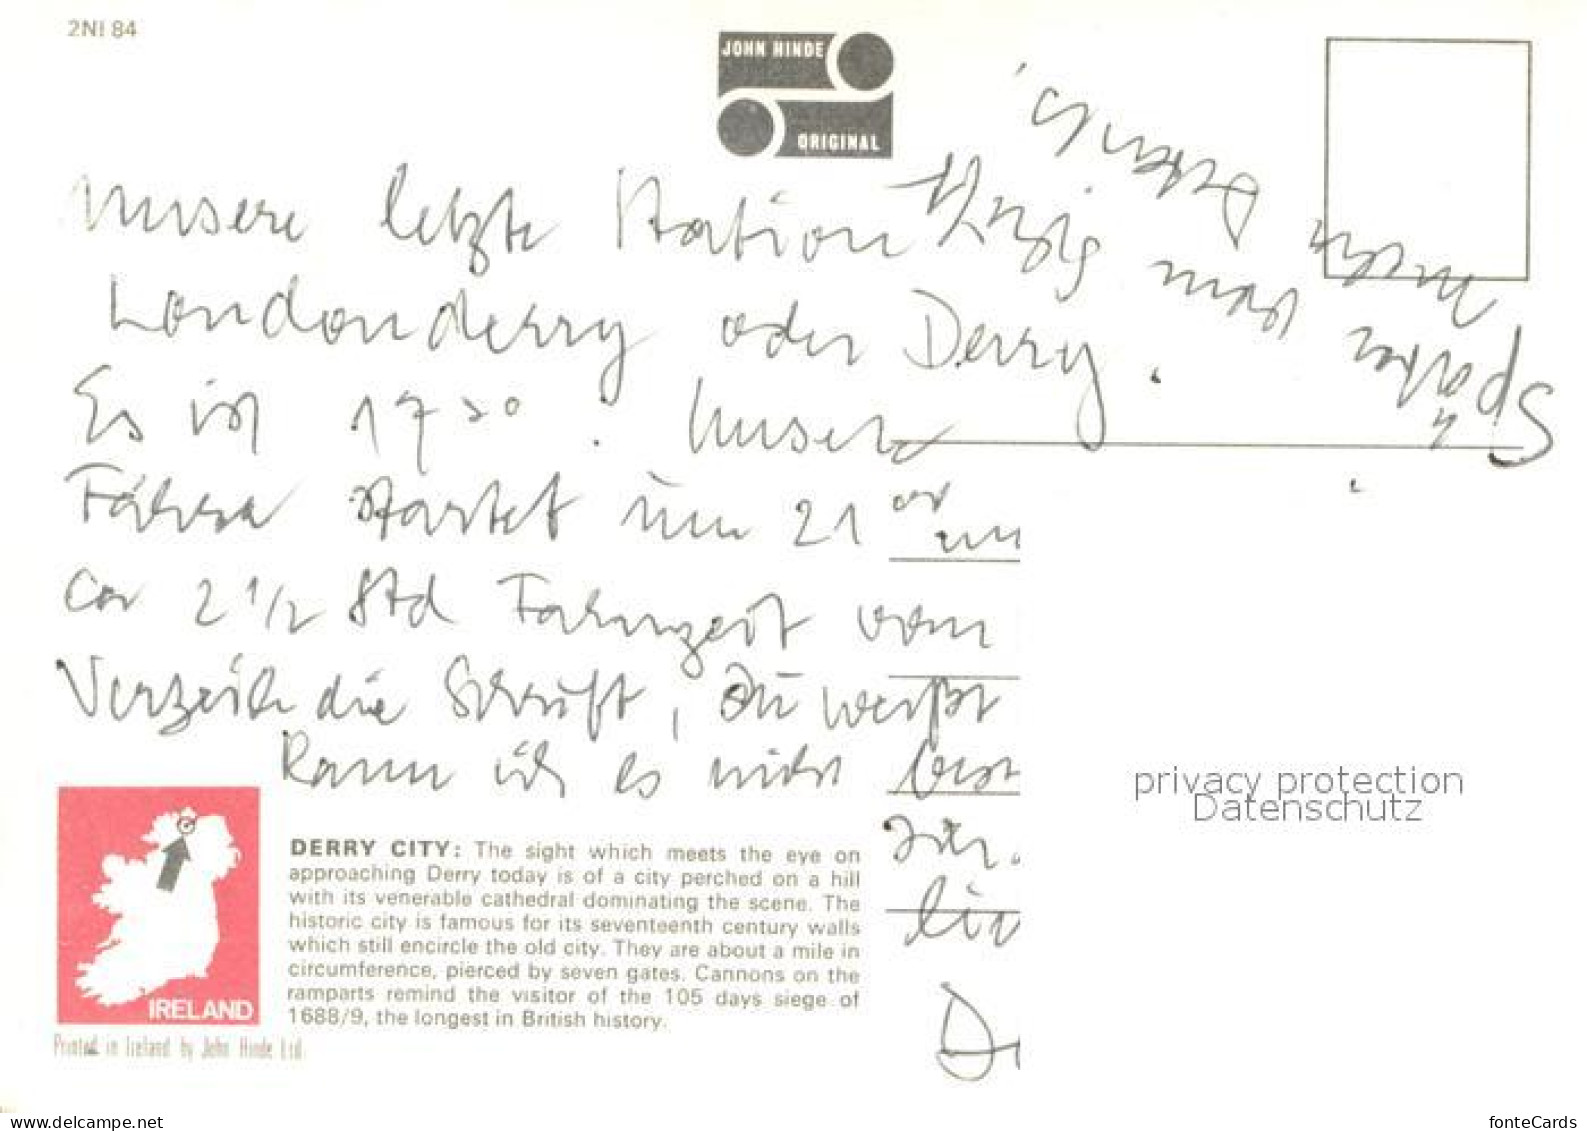 2NI 84
JOHN HINDE
ORIGINAL
Unsere letzte Station
Londonderry oder Derry.
Es ist 17³⁰. Unsere
Fähre startet um 21⁰⁰
ca 2 1/2 Std Fahrzeit von
Verzeih die Schrift, Du weißt
Kann ich es nicht
Später mehr
IRELAND
Printed in Ireland by John Hinde Ltd.
DERRY CITY: The sight which meets the eye on
approaching Derry today is of a city perched on a hill
with its venerable cathedral dominating the scene. The
historic city is famous for its seventeenth century walls
which still encircle the old city. They are about a mile in
circumference, pierced by seven gates. Cannons on the
ramparts remind the visitor of the 105 days siege of
1688/9, the longest in British history.
privacy protection
Datenschutz
www.delcampe.net
fonteCards